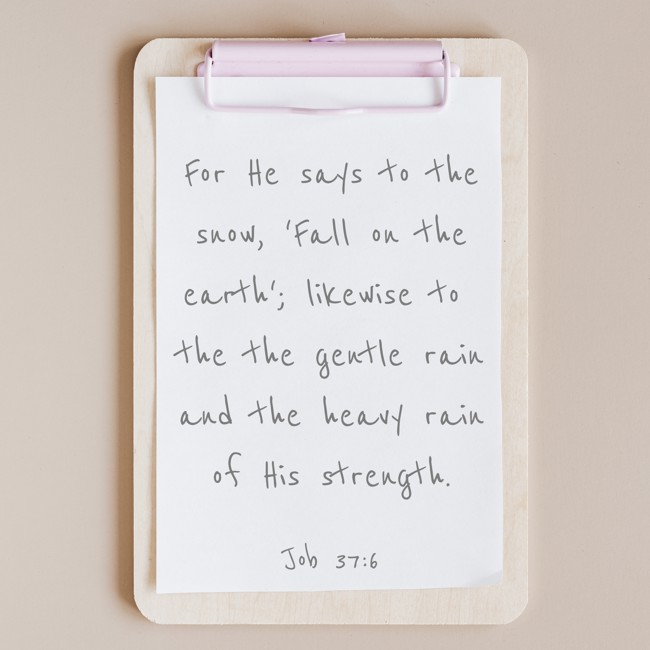 For He says to the
snow, 'Fall on the
earth'; likewise to
the the gentle rain
and the heavy rain
of His strength.
Job 37:6